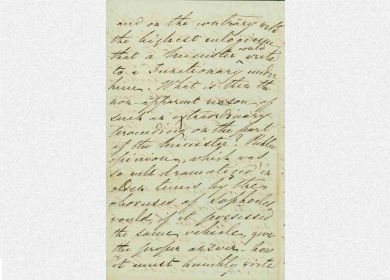 and on the contrary with
the highest eulogium
that a Minister would write
to a Functionary under
him. What is then the
non-apparent reason of
such an extraordinary
proceeding on the part
of the Minister? Public
opinion, which was
so well dramatized in
olden times by the
choruses of Sophocles
would, if it possessed
the same vehicles, give
the proper answer.
it must humbly